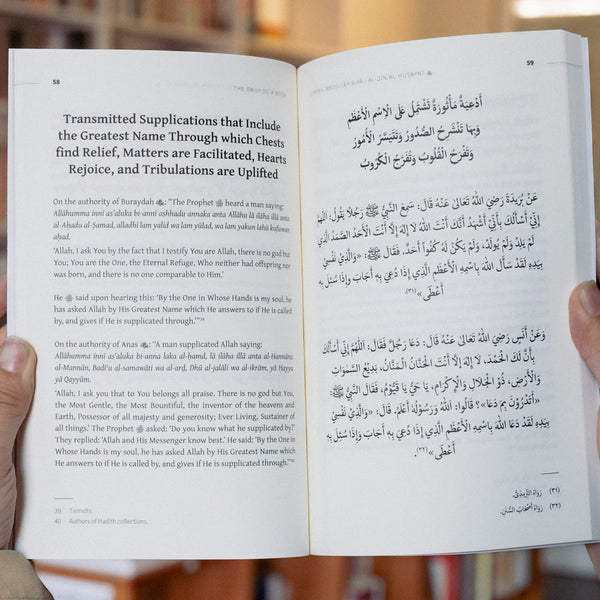 58
THE DAILY DU'A BOOK
Transmitted Supplications that Include
the Greatest Name Through which Chests
find Relief, Matters are Facilitated, Hearts
Rejoice, and Tribulations are Uplifted
On the authority of Buraydah: "The Prophet ﷺ heard a man saying:
Allāhumma innī as'aluka bi-annī ashhadu annaka anta Allāhu lā ilāha illā anta
al-Aḥadu al-Ṣamad, alladhī lam yalid wa lam yūlad, wa lam yakun lahū kufuwan
aḥad.
'Allah, I ask You by the fact that I testify You are Allah, there is no god but
You; You are the One, the Eternal Refuge, Who neither had offspring nor
was born, and there is no one comparable to Him.'
He ﷺ said upon hearing this: 'By the One in Whose Hands is my soul, he
has asked Allah by His Greatest Name which He answers to if He is called
by, and gives if He is supplicated through.'"³⁹
On the authority of Anas: "A man supplicated Allah saying:
Allāhumma innī as'aluka bi-anna laka al-ḥamd, lā ilāha illā anta al-Ḥannān
al-Mannān, Badī'u al-samawāti wa al-arḍ, Dhū al-jalāli wa al-ikrām, yā Ḥayyu
yā Qayyūm.
'Allah, I ask you that to You belongs all praise. There is no god but You,
the Most Gentle, the Most Bountiful, the Inventor of the heavens and
Earth, Possessor of all majesty and generosity; Ever Living, Sustainer of
all things.' The Prophet ﷺ asked: 'Do you know what he supplicated by?'
They replied: 'Allah and His Messenger know best.' He said: 'By the One in
Whose Hands is my soul, he has asked Allah by His Greatest Name which
He answers to if He is called by, and gives if He is supplicated through.'"⁴⁰
39 Tirmidhī.
40 Authors of Ḥadīth collections.
ABDULLĀH SIRĀJ AL-DĪN AL-ḤUSAYNĪ
59
أَدْعِيَةٌ مَأْثُورَةٌ تَشْتَمِلُ عَلَى الِاسْمِ الْأَعْظَمِ
وَبِهَا تَنْشَرِحُ الصُّدُورُ وَتَتَيَسَّرُ الْأُمُورُ
وَتَفْرَحُ الْقُلُوبُ وَتُفَرَّجُ الْكُرُوبُ
عَنْ بُرَيْدَةَ رَضِيَ اللهُ تَعَالَى عَنْهُ قَالَ: سَمِعَ النَّبِيُّ ﷺ رَجُلًا يَقُولُ: اللَّهُمَّ
إِنِّي أَسْأَلُكَ بِأَنِّي أَشْهَدُ أَنَّكَ أَنْتَ اللهُ لَا إِلَهَ إِلَّا أَنْتَ الْأَحَدُ الصَّمَدُ الَّذِي
لَمْ يَلِدْ وَلَمْ يُولَدْ، وَلَمْ يَكُنْ لَهُ كُفُوًا أَحَدٌ. فَقَالَ ﷺ: «وَالَّذِي نَفْسِي
بِيَدِهِ لَقَدْ سَأَلَ اللهَ بِاسْمِهِ الْأَعْظَمِ الَّذِي إِذَا دُعِيَ بِهِ أَجَابَ وَإِذَا سُئِلَ بِهِ
أَعْطَى»(٣١)
وَعَنْ أَنَسٍ رَضِيَ اللهُ تَعَالَى عَنْهُ قَالَ: دَعَا رَجُلٌ فَقَالَ: اللَّهُمَّ إِنِّي أَسْأَلُكَ
بِأَنَّ لَكَ الْحَمْدَ، لَا إِلَهَ إِلَّا أَنْتَ الْحَنَّانُ الْمَنَّانُ، بَدِيعُ السَّمَوَاتِ
وَالْأَرْضِ، ذُو الْجَلَالِ وَالْإِكْرَامِ، يَا حَيُّ يَا قَيُّومُ، فَقَالَ النَّبِيُّ ﷺ:
«أَتَدْرُونَ بِمَ دَعَا»؟ قَالُوا: اللهُ وَرَسُولُهُ أَعْلَمُ. قَالَ: «وَالَّذِي نَفْسِي
بِيَدِهِ لَقَدْ سَأَلَ اللهَ بِاسْمِهِ الْأَعْظَمِ الَّذِي إِذَا دُعِيَ بِهِ أَجَابَ وَإِذَا سُئِلَ بِهِ
أَعْطَى»(٣٢)
(٣١) رَوَاهُ التِّرْمِذِيُّ.
(٣٢) رَوَاهُ أَصْحَابُ السُّنَنِ.